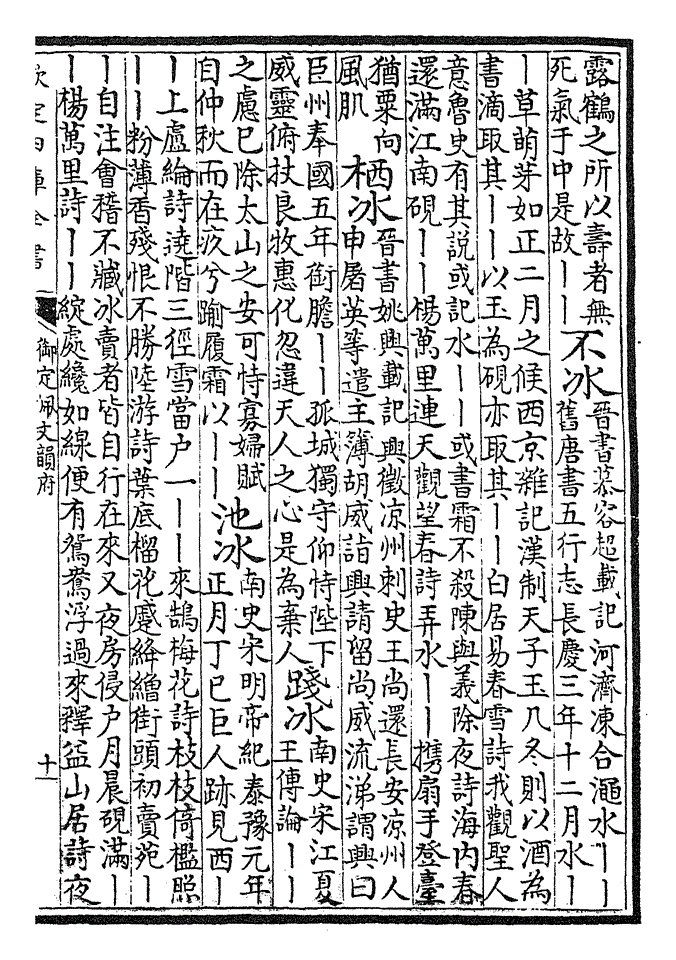 露鶴之所以壽者無
死氣于中是故〡〡
不冰
晉書慕容超載記河濟凍合澠水〡〡
舊唐書五行志長慶三年十二月水〡
〡草萌芽如正二月之候西京雜記漢制天子玉几冬則以酒為
書滴取其〡〡以玉為硯亦取其〡〡白居易春雪詩我觀聖人
意魯史有其說或記水〡〡或書霜不殺陳與義除夜詩海内春
還滿江南硯〡〡楊萬里連天觀望春詩弄水〡〡攜扇手登臺
猶粟向
風肌
栖冰
晉書姚興載記興徵凉州刺史王尚還長安凉州人
申屠英等遣主簿胡威詣興請留尚威流涕謂興曰
臣州奉國五年銜膽〡〡孤城獨守仰恃陛下
威靈俯杖良牧惠化忽違天人之心是為棄人
踐冰
南史宋江夏
王傳論〡〡
之慮已除太山之安可恃寡婦賦
自仲秋而在疚兮踰履霜以〡〡
池冰
南史宋明帝紀泰豫元年
正月丁巳巨人跡見西〡
〡上盧綸詩遶階三徑雪當户一〡〡來鵠梅花詩枝枝倚檻照
〡〡粉薄香殘恨不勝陸游詩葉底榴花蹙絳繒街頭初賣苑〡
〡自注會稽不藏冰賣者皆自行在來又夜房侵户月晨硯滿〡
〡楊萬里詩〡〡綻處纔如線便有鴛鴦浮過來釋益山居詩夜
欽定四庫全書
御定佩文韻府
十